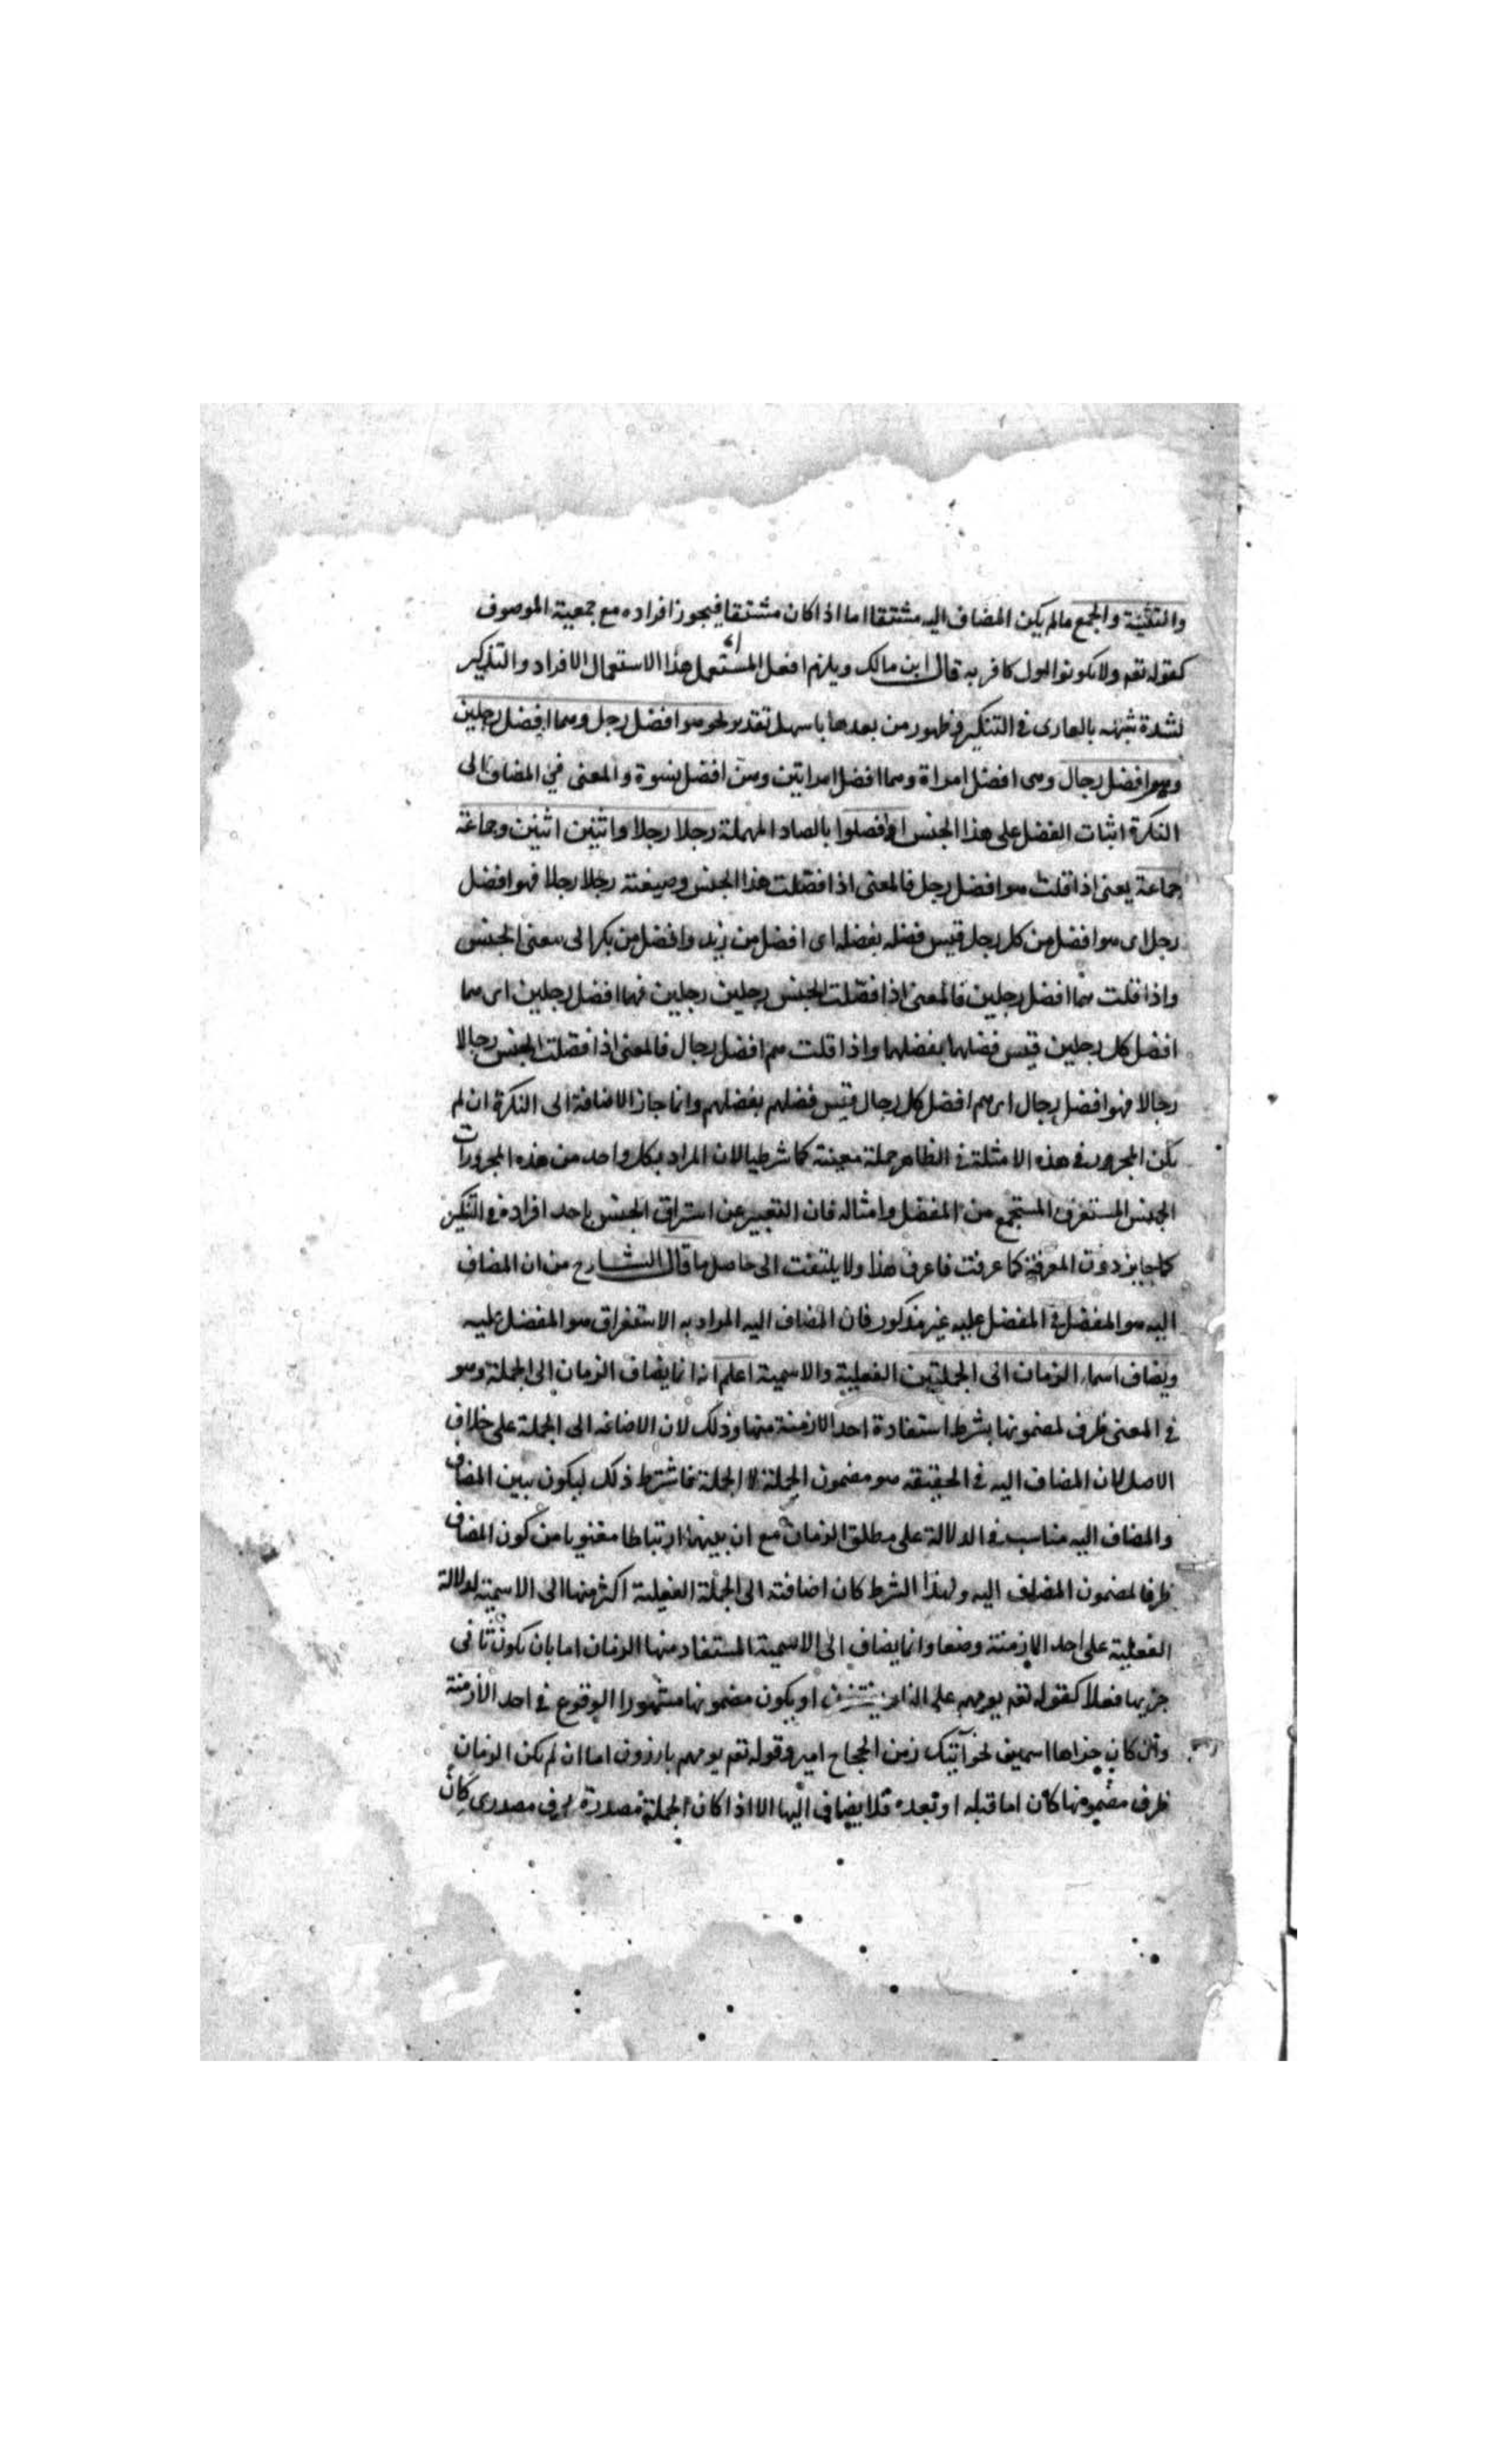 والتثنية والجمع مالم يكن المضاف اليه مشتقا اما اذا كان مشتقا فيجوز افراده مع جمعية الموصوف
كقوله تعم ولا تكونوا اول كافر به قال ابن مالك ويلزم افعل المستعمل هذا الاستعمال الافراد والتذكير
لشدة شبهه بالعارى في التنكير في ظهور من بعدها باسهل تقدير نحو هو افضل رجل وهما افضل رجلين
وهم افضل رجال وهى افضل امراة وهما افضل امراتين وهن افضل نسوة والمعنى في المضاف الى
النكرة اثبات الفضل على هذا الجنس اذا فصلوا بالصاد المهملة رجلا رجلا واثنين اثنين وجماعة
جماعة يعنى اذا قلت هو افضل رجل فالمعنى اذا فصلت هذا الجنس وصيغته رجلا رجلا فهو افضل
رجل اى هو افضل من كل رجل قيس فضله بفضله اى افضل من زيد وافضل من بكر الى معنى الجنس
واذا قلت هما افضل رجلين فالمعنى اذا فصلت الجنس رجلين رجلين فهما افضل رجلين اى هما
افضل كل رجلين قيس فضلهما بفضلهما واذا قلت هم افضل رجال فالمعنى اذا فصلت الجنس رجالا
رجالا فهو افضل رجال اى هم افضل كل رجال قيس فضلهم بفضلهم وانما جاز الاضافة الى النكرة ان لم
يكن المجرور في هذه الامثلة في الظاهر جملة معينة كما شرط الا ان المراد بكل واحد من هذه المجرورات
الجنس المستغرق المستجمع من المفضل وامثاله فان التعبير عن استغراق الجنس باحد افراده في التنكير
كما جايز دون المعرفة كما عرفت فاعرف هذا ولا يلتفت الى حاصل ما قال الشارح من ان المضاف
اليه هو المفضل في المفضل عليه غير مذكور فان المضاف اليه المراد به الاستغراق هو المفضل عليه
ويضاف اسماء الزمان الى الجملتين الفعلية والاسمية اعلم انه انما يضاف الزمان الى الجملة وهو
في المعنى ظرف لمضمونها بشرط استفادة احد الازمنة منها وذلك لان الاضافة الى الجملة على خلاف
الاصل لان المضاف اليه في الحقيقة هو مضمون الجملة لا الجملة فاشترط ذلك ليكون بين المضاف
والمضاف اليه مناسب في الدلالة على مطلق الزمان مع ان بينهما ارتباطا معنويا من كون المضاف
ظرفا لمضمون المضاف اليه ولهذا الشرط كان اضافته الى الجملة الفعلية اكثر منها الى الاسمية لدلالة
الفعلية على احد الازمنة وضعا وانما يضاف الى الاسمية المستفاد منها الزمان اما بان يكون ثانى
جزيها فعلا كقوله تعم يوم هم على النار يفتنون او يكون مضمونها مشهورا الوقوع في احد الازمنة
وان كان جزاها اسمين نحو آتيك زمن الحجاج امير وقوله تعم يوم هم بارزون اما ان لم يكن الزمان
ظرف مضمونها كان اما قبله او بعده فلا يضاف اليها الا اذا كان الجملة مصدرة بحرف مصدرى كان